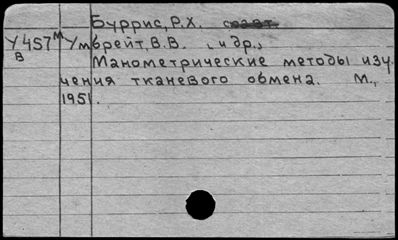 Буррис, Р.Х. соавт.
У457м Умбрейт, В.В. [и др.]
В
Манометрические методы изу-
чения тканевого обмена. М.,
1951.